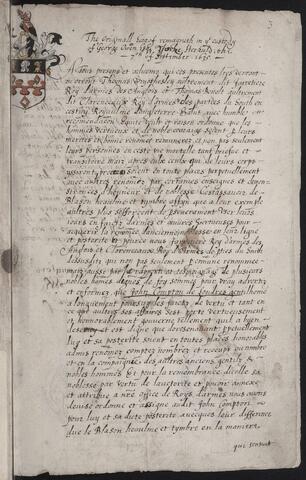 The Originall hereof remayneth in ye custody
of George Owen Esqr Yorke Herauld. this
of September. 1635.
A Tous presens et advenir qui ces presentes lres verront
ou orront Thomas Wriothesley autrement dit Jarretiere
Roy Darmes des Anglois et Thomas Benolt autrement
dit Clarenceaux Roy d'armes des parties du South en
cestuy Royaulme Dangleterre Salut avec humble
recommendation Equite veult et raison ordonne que les
hommes vertueux et de noble courage soient p leurs
merites et bonne renommee remunerez et non pas seulement
leurs personnes en ceste vie mortelle tant brefue et
transitoire mais apres eulx ceulx qui de leurs corps
soient en toutes places perpetuellement
avec autres renomes par certaines enseignes et demon-
strances d'honneur et de noblesse Cestassavoir de
Blason heaulme et tymbre affyn que a leur exemple
aultres plus sefforcent de perseveramment user leurs
iours en faictz darmes et autres œuvres vertueuses pour
acquerir la renomee d'ancienne noblesse en leur ligne
et posterite Et pource nous Jarretiere Roy darmes des
Anglois et Clarenceaux Roy darmes de
dessusdit qui non pas seulement p commune renommee
mais aussi par le rapport et tesmoignage de plusieurs
nobles homes dignes de foy sommes pour vray advertis
et informez que John Compton de Londres gentilhomme
a longuement poursuy les faictz de vertu et tant en
ce que autres ses affaires sest porte vertueusement
et honnorablement gouverne tellement quil a bien
deservy et est digne que doresenavant p petuellement
luy et sa posterite soient en toutes places honorables
admis renomez comptez nombrez et receuz en nombre
et en la compaignie des aultres anciens gentilz et
nobles hommes Et pour la remembrance dicelle sa
noblesse par vertu de lauctorite et povoir annexe
et attribue a nre office de Roys darmes nous avons
devise ordonne et assigne audit John Compton
pour luy et sa dicte posterite avecques leur difference
due le Blason heaulme et tymbre en la maniere
qui sensuit